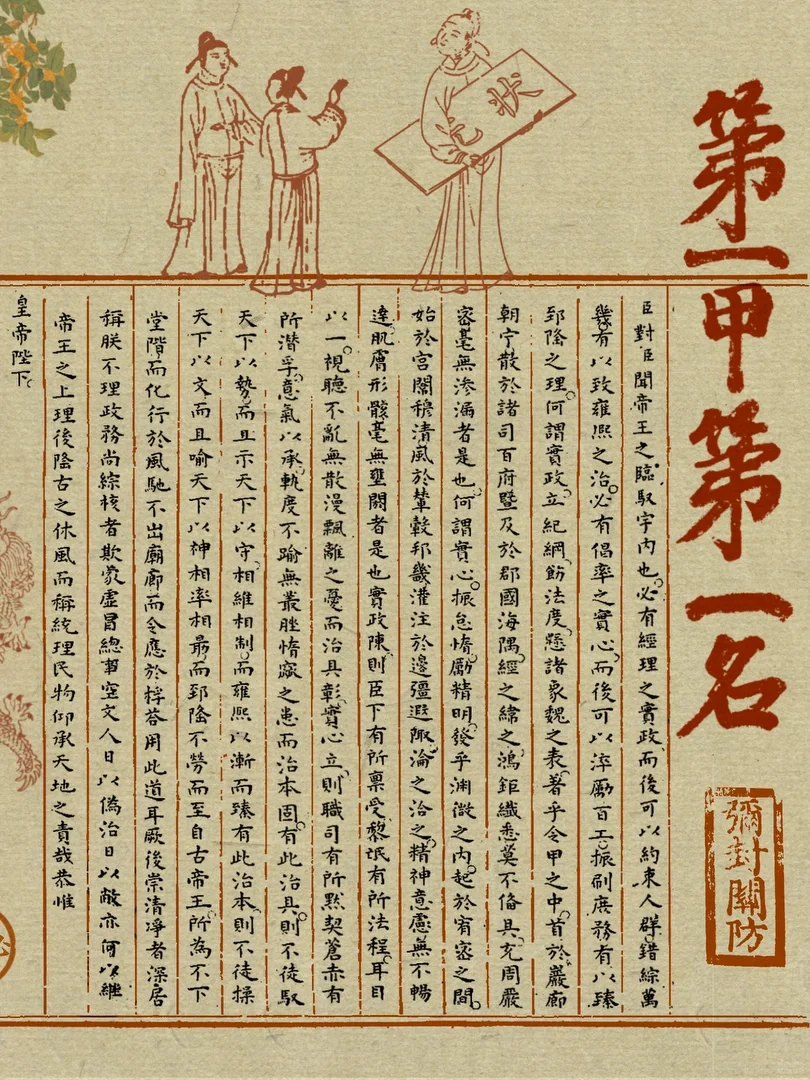 狀元
第一甲第一名
彌封關防
臣對臣聞帝王之臨馭宇內也必有經理之實政而後可以約束人群錯綜萬
幾有以致雍熙之治必有倡率之實心而後可以淬勵百工振刷庶務有以臻
郅隆之理何謂實政立紀綱飭法度懸諸象魏之表著乎令甲之中首於巖廊
朝宁散於諸司百府暨及於郡國海隅經之緯之鴻鉅纖悉莫不備具充周嚴
密毫無滲漏者是也何謂實心振怠惰勵精明發乎淵微之內起於宥密之間
始於宮闈穆清風於輦轂邦畿灌注於邊疆遐陬淪之洽之精神意慮無不暢
達肌膚形骸毫無壅閼者是也實政陳則臣下有所稟受黎氓有所法程耳目
以一視聽不亂無散漫飄離之憂而治具彰實心立則職司有所默契蒼赤有
所潛孚意氣以承軌度不踰無叢脞惰窳之患而治本固有此治具則不徒馭
天下以勢而且示天下以守相維相制而雍熙以漸而臻有此治本則不徒操
天下以文而且喻天下以神相率相勗而郅隆不勞而至自古帝王所為不下
堂階而化行於風馳不出廟廊而令應於桴荅用此道耳厥後崇清凈者深居
稱朕不理政務尚綜核者欺蒙虛冒總事空文人日以偽治日以敝亦何以繼
帝王之上理後隆古之休風而稱統理民物仰承天地之責哉恭惟
皇帝陛下